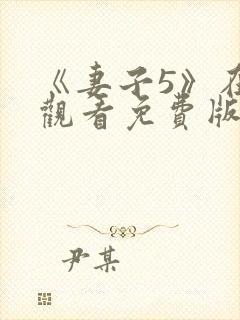 《妻子5》在
觀看免費版
尹某